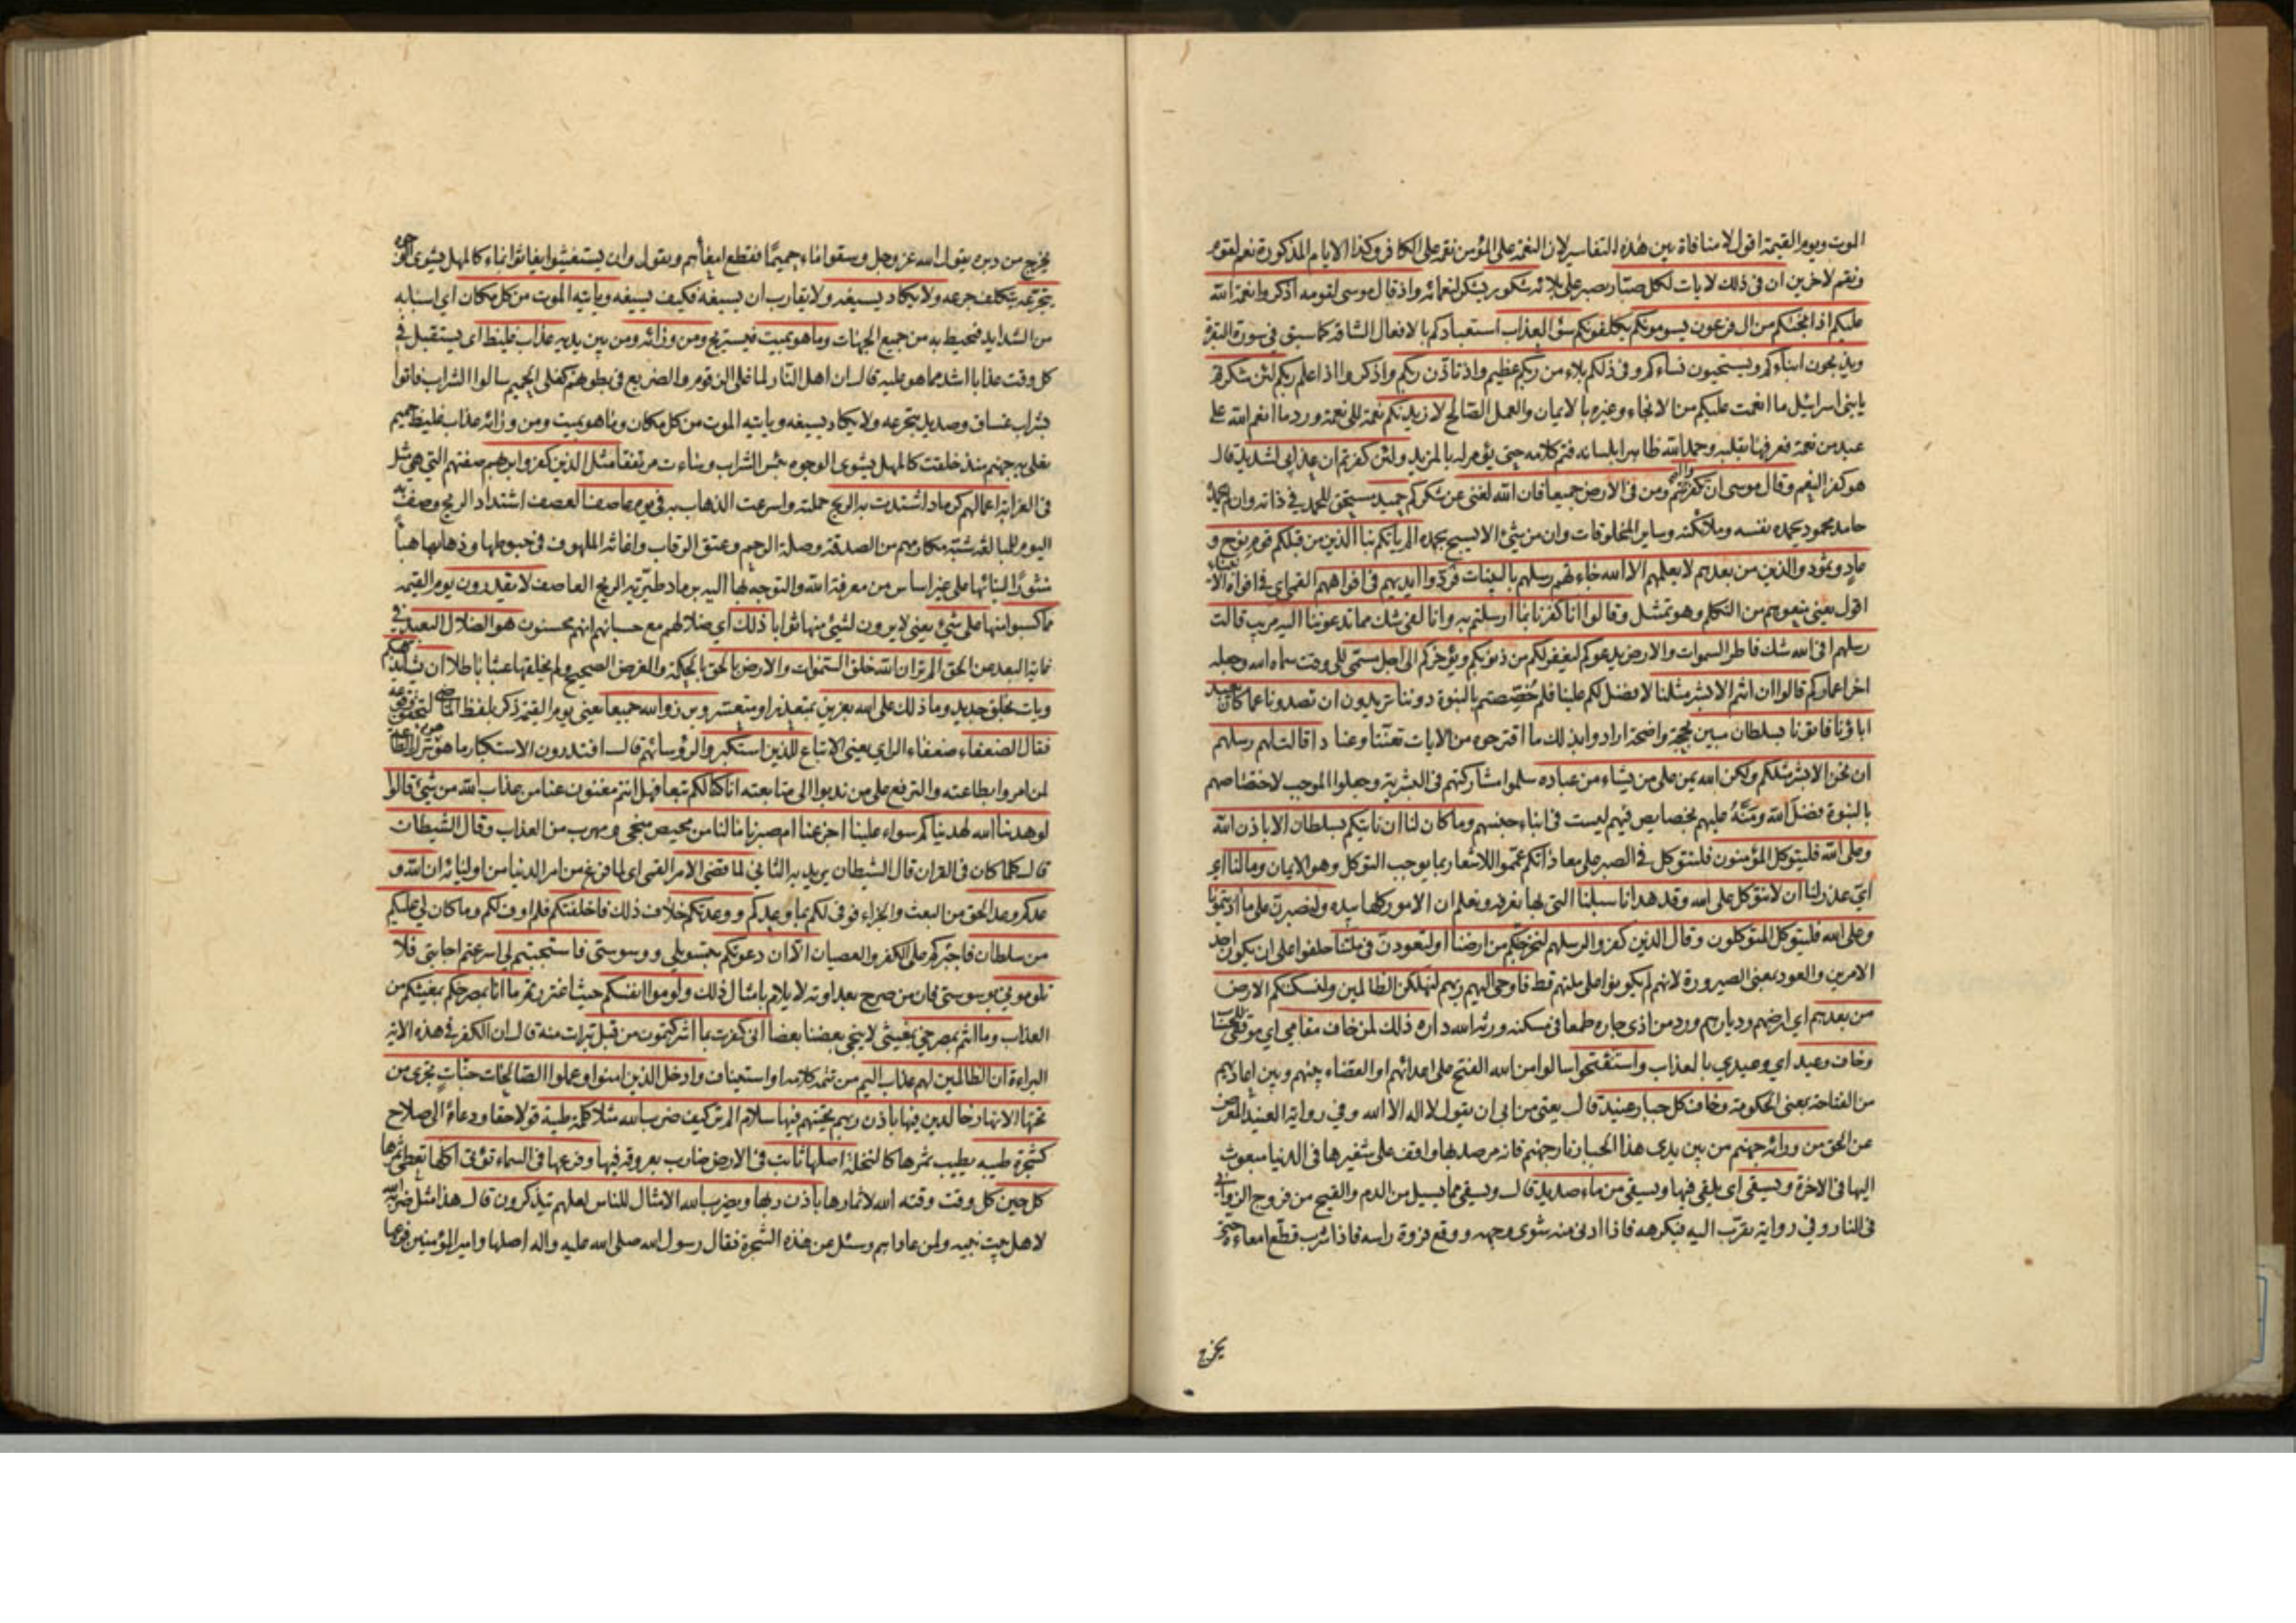 الموت ويوم القيمة اقول لا منافاة بين هذه التفاسير لان النعمة على المؤمن نقمة على الكافر وكذا الايام المذكورة نعم لقوم
ونقم لاخرين ان فى ذلك لايات لكل صبار يصبر على بلائه شكور يشكر لنعمائه واذ قال موسى لقومه اذكروا نعمة الله
عليكم اذ انجيكم من ال فرعون يسومونكم يكلفونكم سوء العذاب استعبادكم بالافعال الشاقة كما سبق فى سورة البقرة
ويذبحون ابناءكم ويستحيون نساءكم وفى ذلكم بلاء من ربكم عظيم واذ تاذن ربكم واذكروا اذ اعلم ربكم لئن شكرتم
يا بنى اسرائيل ما انعمت عليكم من الانجاء وغيره بالايمان والعمل الصالح لازيدنكم نعمة الى نعمة ورد ما انعم الله على
عبد من نعمة فعرفها بقلبه وحمد الله ظاهرا بلسانه فتم كلامه حتى يؤمر له بالمزيد ولئن كفرتم ان عذابى لشديد قال
هو كفر النعم وقال موسى ان تكفروا انتم ومن فى الارض جميعا فان الله لغنى عن شكركم حميد مستحق للحمد فى ذاته وان لم يحمده
حامد محمود يحمده نفسه وملائكته وساير المخلوقات وان من شئ الا يسبح بحمده الم ياتكم نبا الذين من قبلكم قوم نوح و
عاد وثمود والذين من بعدهم لا يعلمهم الا الله جاءتهم رسلهم بالبينات فردوا ايديهم فى افواههم القمى اى فى افواه الانبياء
اقول يعنى منعوهم من التكلم وهو تمثيل وقالوا انا كفرنا بما ارسلتم به وانا لفى شك مما تدعوننا اليه مريب قالت
رسلهم افى الله شك فاطر السموات والارض يدعوكم ليغفر لكم من ذنوبكم ويؤخركم الى اجل مسمى الى وقت سماه الله وجعله
اخر اعماركم قالوا ان انتم الا بشر مثلنا لا فضل لكم علينا فلم خصصتم بالنبوة دوننا تريدون ان تصدونا عما كان يعبد
اباؤنا فاتونا بسلطان مبين بحجة واضحة ارادوا بذلك ما اقترحوه من الايات تعنتا وعنادا قالت لهم رسلهم
ان نحن الا بشر مثلكم ولكن الله يمن على من يشاء من عباده سلموا مشاركتهم فى البشرية وجعلوا الموجب لاختصاصهم
بالنبوة فضل الله ومنه عليهم بخصايص فيهم ليست فى ابناء جنسهم وما كان لنا ان ناتيكم بسلطان الا باذن الله
وعلى الله فليتوكل المؤمنون فلنتوكل فى الصبر على معاداتكم عمموا للاشعار بما يوجب التوكل وهو الايمان وما لنا اى
اى عذر لنا ان لا نتوكل على الله وقد هدانا سبلنا التى بها نعرفه ونعلم ان الامور كلها بيده ولنصبرن على ما اذيتمونا
وعلى الله فليتوكل المتوكلون وقال الذين كفروا لرسلهم لنخرجنكم من ارضنا او لتعودن فى ملتنا حلفوا على ان يكون احد
الامرين والعود بمعنى الصيرورة لانهم لم يكونوا على ملتهم قط فاوحى اليهم ربهم لنهلكن الظالمين ولنسكننكم الارض
من بعدهم اى ارضهم وديارهم ورد من اذى جاره طمعا فى مسكنه ورثه الله داره ذلك لمن خاف مقامى اى موقفى للحساب
وخاف وعيد اى وعيدى بالعذاب واستفتحوا سالوا من الله الفتح على اعدائهم او القضاء بينهم وبين اعاديهم
من الفتاحة بمعنى الحكومة وخاب كل جبار عنيد قال يعنى من ابى ان يقول لا اله الا الله وفى رواية العنيد المعرض
عن الحق من ورائه جهنم من بين يدى هذا الجبار نار جهنم فانه مرصد بها واقف على شفيرها فى الدنيا مبعوث
اليها فى الاخرة ويسقى اى يلقى فيها ويسقى من ماء صديد قال ويسقى مما يسيل من الدم والقيح من فروج الزوانى
فى النار وفى رواية يقرب اليه فيكرهه فاذا ادنى منه شوى وجهه ووقع فروة راسه فاذا شرب قطع امعاءه حتى
يخرج
يخرج من دبره يقول الله عز وجل وسقوا ماء حميما فقطع امعاءهم ويقول وان يستغيثوا يغاثوا بماء كالمهل يشوى الوجوه
يتجرعه يتكلف جرعه ولا يكاد يسيغه ولا يقارب ان يسيغه فكيف يسيغه وياتيه الموت من كل مكان اى اسبابه
من الشدايد فتحيط به من جميع الجهات وما هو بميت فيستريح ومن ورائه ومن بين يديه عذاب غليظ اى يستقبل فى
كل وقت عذابا اشد مما هو عليه قال ان اهل النار لما غلى الزقوم والضريع فى بطونهم كغلى الحميم سالوا الشراب فاتوا
بشراب غساق وصديد يتجرعه ولا يكاد يسيغه وياتيه الموت من كل مكان وما هو بميت ومن ورائه عذاب غليظ حميم
يغلى به جهنم منذ خلقت كالمهل يشوى الوجوه بئس الشراب وساءت مرتفقا مثل الذين كفروا بربهم صفتهم التى هى مثل
فى الغرابة اعمالهم كرماد اشتدت به الريح حملته واسرعت الذهاب به فى يوم عاصف العصف اشتداد الريح وصف به
اليوم للمبالغة شبه مكارمهم من الصدقة وصلة الرحم وعتق الرقاب واغاثة الملهوف فى حبوطها وذهابها هباء
منثورا لبنائها على غير اساس من معرفة الله والتوجه بها اليه برماد طيرته الريح العاصف لا يقدرون يوم القيمة
مما كسبوا منها على شئ يعنى لا يرون لشئ منها ثوابا ذلك اى ضلالهم مع حسبانهم انهم محسنون هو الضلال البعيد فى
غاية البعد عن الحق الم تر ان الله خلق السموات والارض بالحق بالحكمة والغرض الصحيح ولم يخلقها عبثا باطلا ان يشا يذهبكم
ويات بخلق جديد وما ذلك على الله بعزيز بمتعذر او متعسر وبرزوا لله جميعا يعنى يوم القيمة ذكر بلفظ الماضى لتحقق وقوعه
فقال الضعفاء ضعفاء الراى يعنى الاتباع للذين استكبروا لرؤسائهم قال افتدرون الاستكبار ما هو هو ترك الطاعة
لمن امروا بطاعته والترفع على من ندبوا الى متابعته انا كنا لكم تبعا فهل انتم مغنون عنا من عذاب الله من شئ قالوا
لو هدينا الله لهديناكم سواء علينا اجزعنا ام صبرنا ما لنا من محيص منجى ومهرب من العذاب وقال الشيطان
قال كلما كان فى القران قال الشيطان يريد به الثانى لما قضى الامر القمى اى لما فرغ من امر الدنيا من اوليائه ان الله و
عدكم وعد الحق من البعث والجزاء فوفى لكم بما وعدكم ووعدتكم خلاف ذلك فاخلفتكم فلم اوف لكم وما كان لى عليكم
من سلطان فاجبركم على الكفر والعصيان الا ان دعوتكم بتسويلى ووسوستى فاستجبتم لى اسرعتم اجابتى فلا
تلومونى بوسوستى فان من صرح بعداوته لا يلام بامثال ذلك ولوموا انفسكم حيث اغتررتم ما انا بمصرخكم بمغيثكم من
العذاب وما انتم بمصرخى بمغيثى لا ينجى بعضنا بعضا انى كفرت بما اشركتمون من قبل تبرات منه قال ان الكفر فى هذه الاية
البراءة ان الظالمين لهم عذاب اليم من تتمة كلامه او استيناف وادخل الذين امنوا وعملوا الصالحات جنات تجرى من
تحتها الانهار خالدين فيها باذن ربهم تحيتهم فيها سلام الم تر كيف ضرب الله مثلا كلمة طيبة قولا حقا ودعاء الى صلاح
كشجرة طيبه يطيب ثمرها كالنخلة اصلها ثابت فى الارض ضارب بعروقه فيها وفرعها فى السماء تؤتى اكلها تعطى ثمرها
كل حين كل وقت وقته الله لاثمارها باذن ربها ويضرب الله الامثال للناس لعلهم يتذكرون قال هذا مثل ضربه الله
لاهل بيت نبيه ولمن عاداهم وسئل عن هذه الشجرة فقال رسول الله صلى الله عليه واله اصلها وامير المؤمنين فرعها